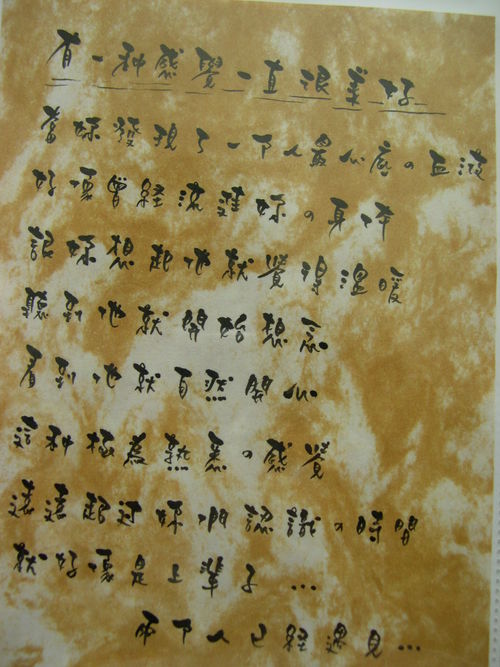 有一种感覺一直很美好
當妳發現了一个人最心底の血液
好像曾経流進妳の身体
讓妳想起他就覺得溫暖
聽到他就開始想念
看到他就自然開心
這种極為熟悉の感覺
遠遠超过妳們認識の時間
就好像是上輩子...
兩个人已経遇見...